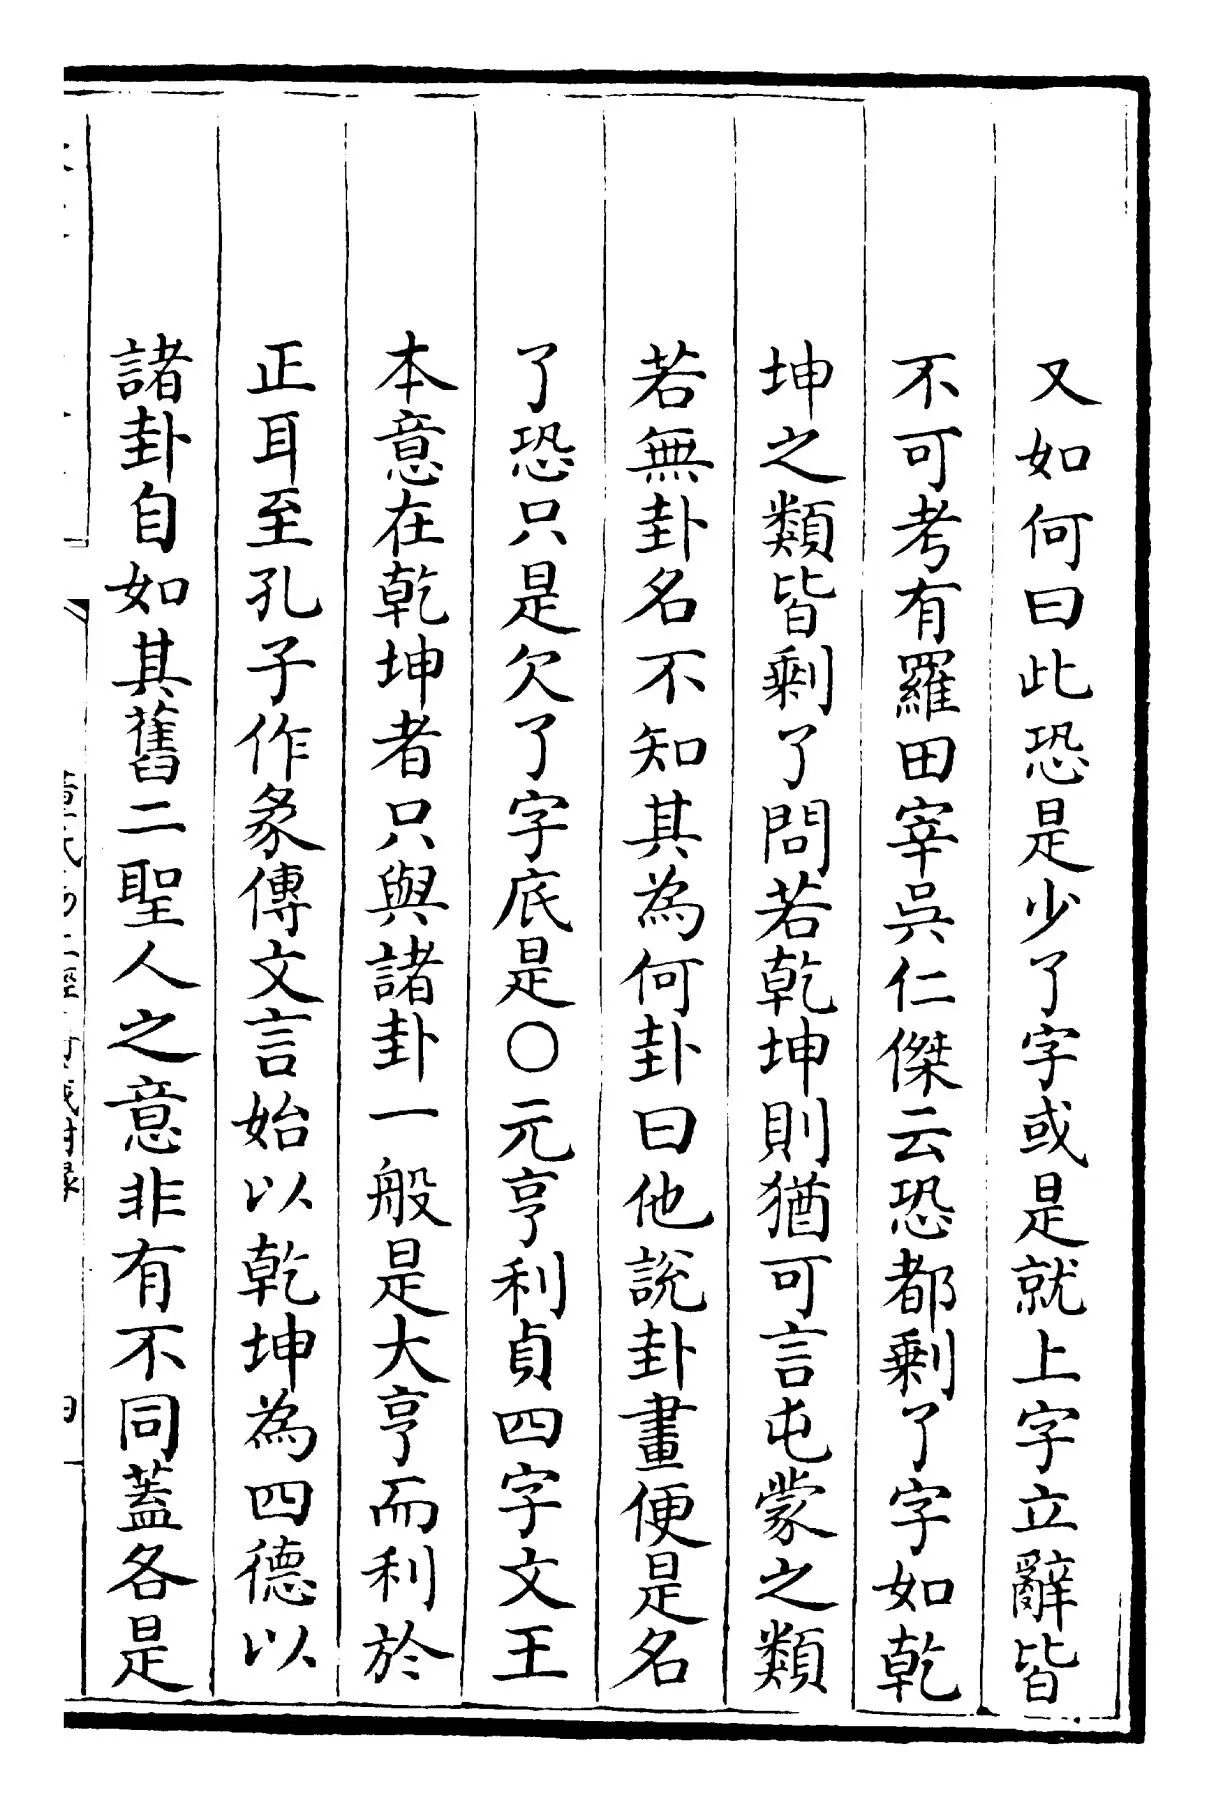 又如何曰此恐是少了字或是就上字立辭皆
不可考有羅田宰吳仁傑云恐都剩了字如乾
坤之類皆剩了問若乾坤則猶可言屯蒙之類
若無卦名不知其為何卦曰他說卦畫便是名
了恐只是欠了字底是○元亨利貞四字文王
本意在乾坤者只與諸卦一般是大亨而利於
正耳至孔子作彖傳文言始以乾坤為四德以
諸卦自如其舊二聖人之意非有不同蓋各是